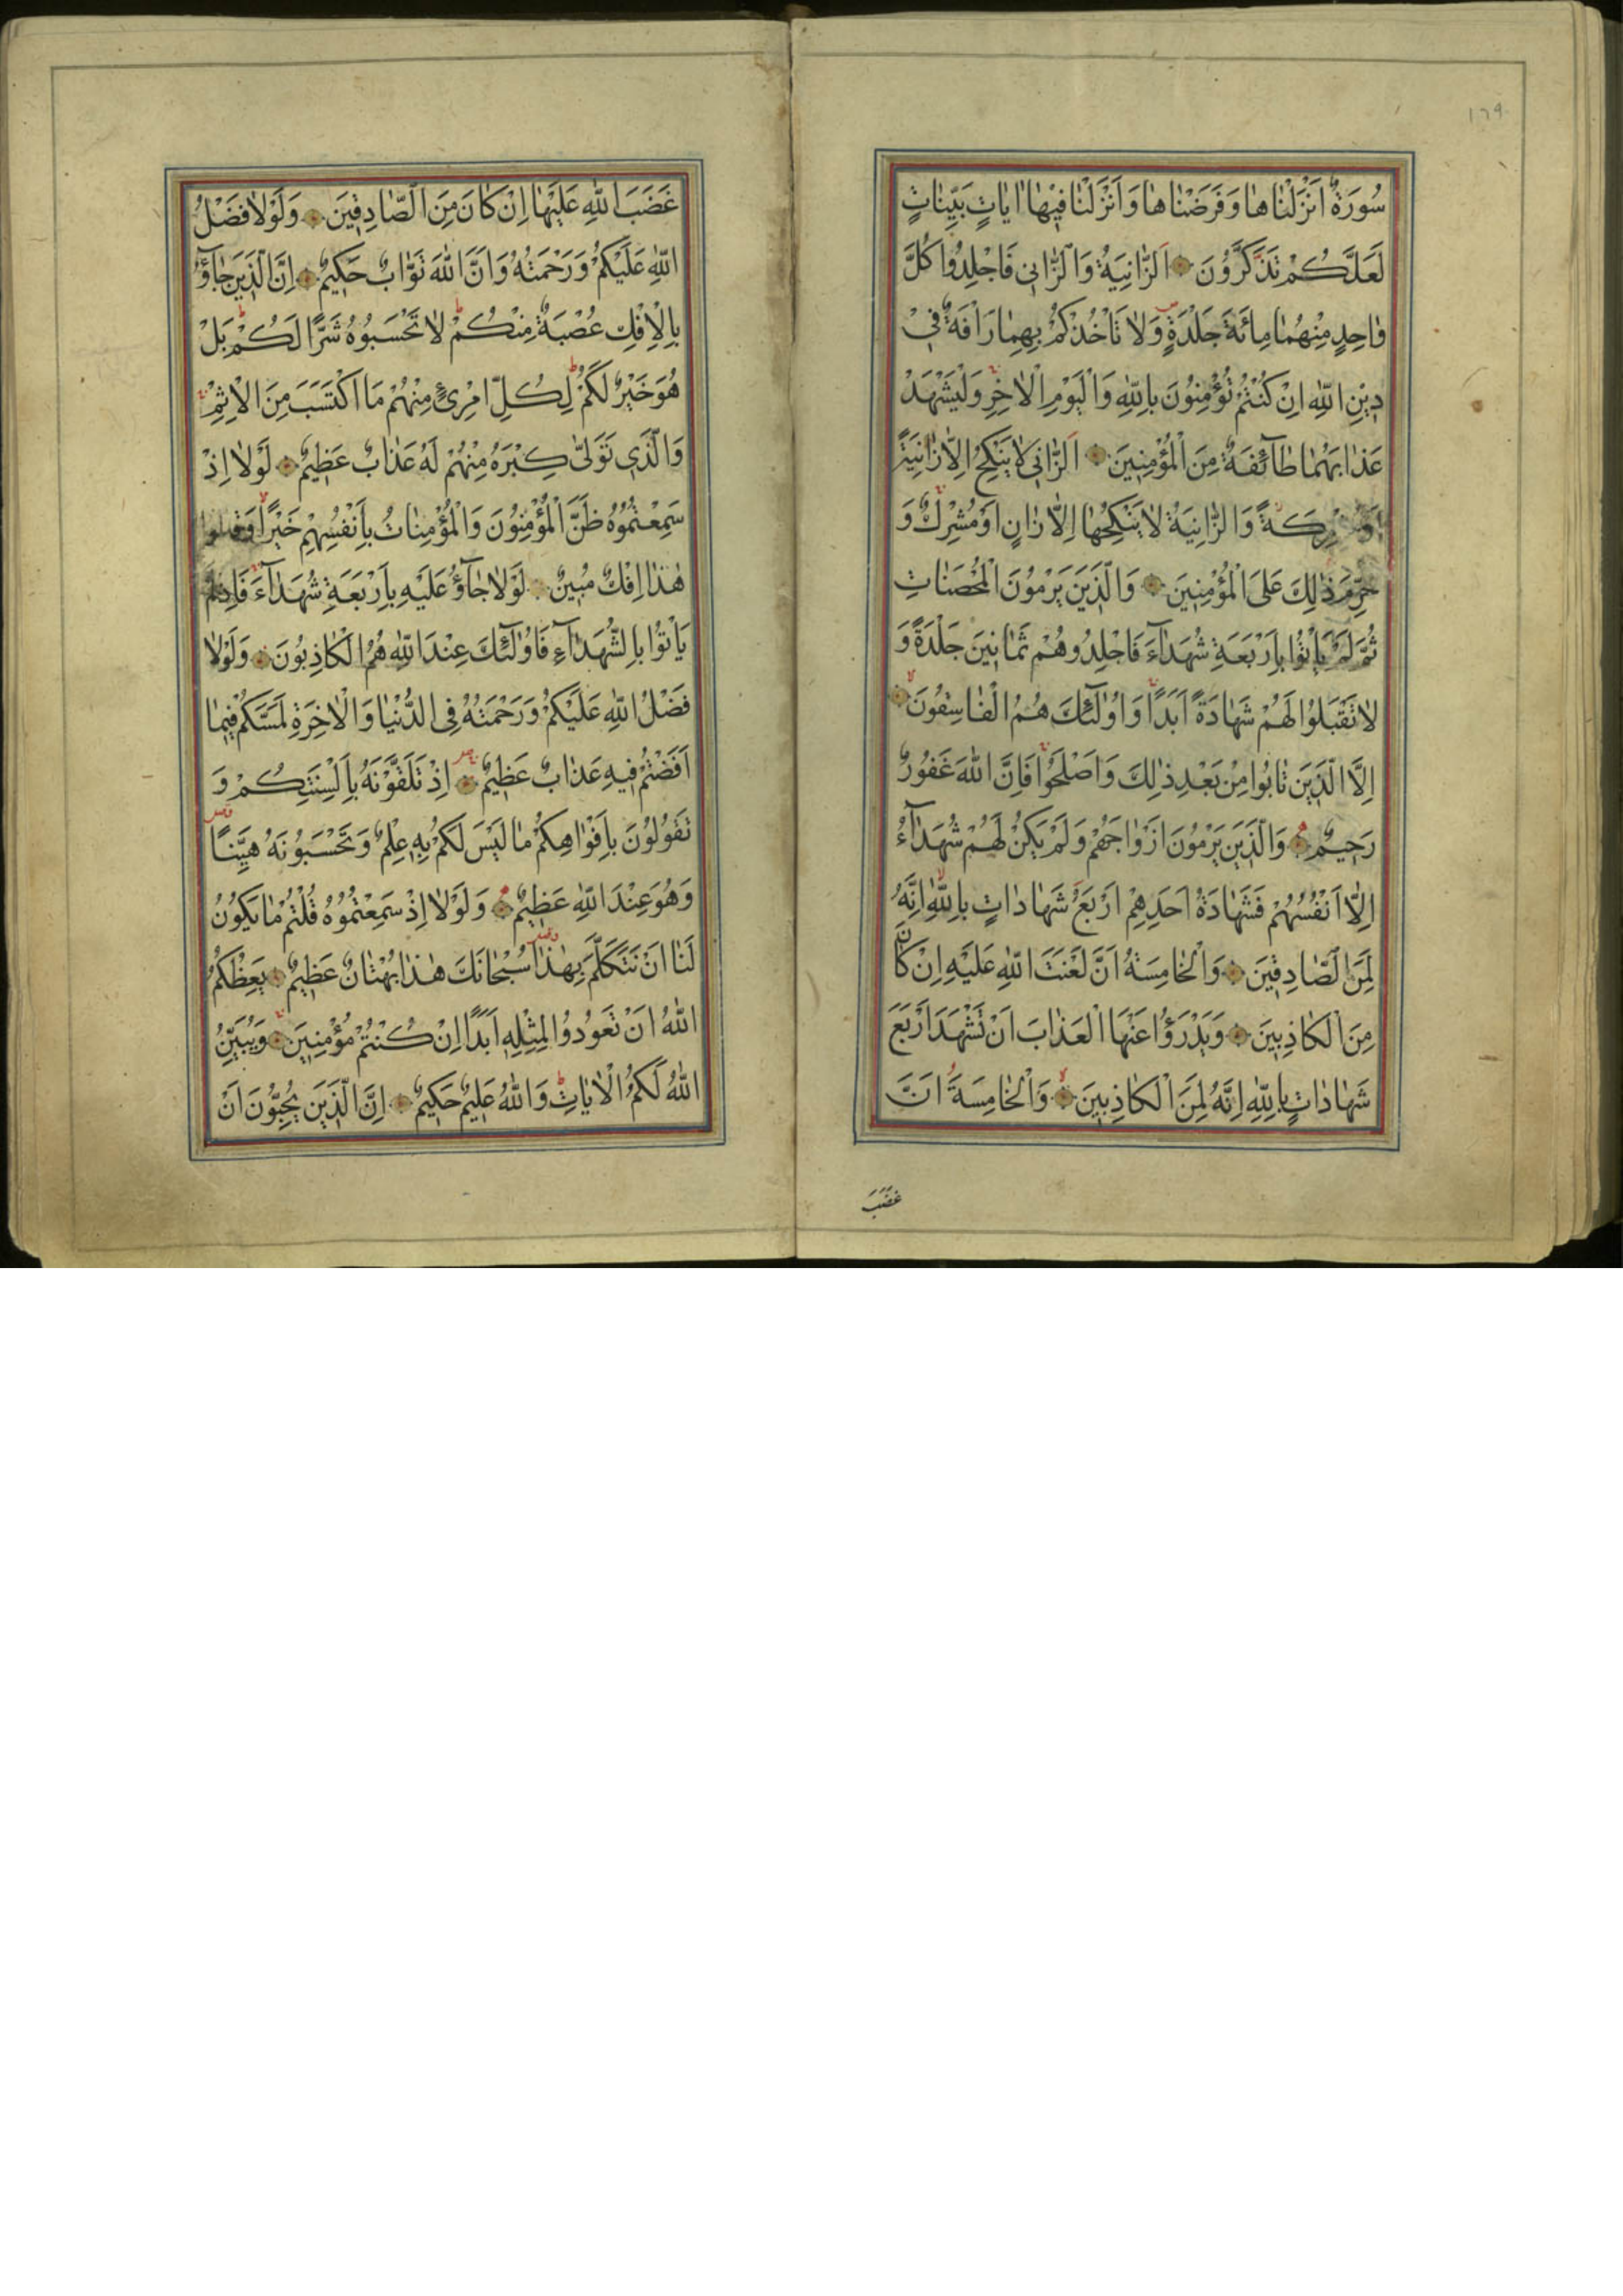 ١٦٩
سُورَةٌ اَنْزَلْنَاهَا وَفَرَضْنَاهَا وَاَنْزَلْنَا فِيْهَا اٰيَاتٍ بَيِّنَاتٍ
لَعَلَّكُمْ تَذَكَّرُونَ اَلزَّانِيَةُ وَالزَّانِى فَاجْلِدُوا كُلَّ
وَاحِدٍ مِنْهُمَا مِائَةَ جَلْدَةٍ وَلَا تَاْخُذْكُمْ بِهِمَا رَاْفَةٌ فِى
دِينِ اللّٰهِ اِنْ كُنْتُمْ تُؤْمِنُونَ بِاللّٰهِ وَالْيَوْمِ الْاٰخِرِ وَلْيَشْهَدْ
عَذَابَهُمَا طَآئِفَةٌ مِنَ الْمُؤْمِنِينَ اَلزَّانِى لَا يَنْكِحُ اِلَّا زَانِيَةً
اَوْ مُشْرِكَةً وَالزَّانِيَةُ لَا يَنْكِحُهَا اِلَّا زَانٍ اَوْ مُشْرِكٌ وَ
حُرِّمَ ذٰلِكَ عَلَى الْمُؤْمِنِينَ وَالَّذِينَ يَرْمُونَ الْمُحْصَنَاتِ
ثُمَّ لَمْ يَاْتُوا بِاَرْبَعَةِ شُهَدَآءَ فَاجْلِدُوهُمْ ثَمَانِينَ جَلْدَةً وَ
لَا تَقْبَلُوا لَهُمْ شَهَادَةً اَبَدًا وَاُولٰٓئِكَ هُمُ الْفَاسِقُونَ
اِلَّا الَّذِينَ تَابُوا مِنْ بَعْدِ ذٰلِكَ وَاَصْلَحُوا فَاِنَّ اللّٰهَ غَفُورٌ
رَحِيمٌ وَالَّذِينَ يَرْمُونَ اَزْوَاجَهُمْ وَلَمْ يَكُنْ لَهُمْ شُهَدَآءُ
اِلَّا اَنْفُسُهُمْ فَشَهَادَةُ اَحَدِهِمْ اَرْبَعُ شَهَادَاتٍ بِاللّٰهِ اِنَّهُ
لَمِنَ الصَّادِقِينَ وَالْخَامِسَةُ اَنَّ لَعْنَتَ اللّٰهِ عَلَيْهِ اِنْ كَانَ
مِنَ الْكَاذِبِينَ وَيَدْرَؤُا عَنْهَا الْعَذَابَ اَنْ تَشْهَدَ اَرْبَعَ
شَهَادَاتٍ بِاللّٰهِ اِنَّهُ لَمِنَ الْكَاذِبِينَ وَالْخَامِسَةَ اَنَّ
غَضَبَ
غَضَبَ اللّٰهِ عَلَيْهَا اِنْ كَانَ مِنَ الصَّادِقِينَ وَلَوْلَا فَضْلُ
اللّٰهِ عَلَيْكُمْ وَرَحْمَتُهُ وَاَنَّ اللّٰهَ تَوَّابٌ حَكِيمٌ اِنَّ الَّذِينَ جَآؤُ
بِالْاِفْكِ عُصْبَةٌ مِنْكُمْ لَا تَحْسَبُوهُ شَرًّا لَكُمْ بَلْ
هُوَ خَيْرٌ لَكُمْ لِكُلِّ امْرِئٍ مِنْهُمْ مَا اكْتَسَبَ مِنَ الْاِثْمِ
وَالَّذِى تَوَلّٰى كِبْرَهُ مِنْهُمْ لَهُ عَذَابٌ عَظِيمٌ لَوْلَا اِذْ
سَمِعْتُمُوهُ ظَنَّ الْمُؤْمِنُونَ وَالْمُؤْمِنَاتُ بِاَنْفُسِهِمْ خَيْرًا وَقَالُوا
هٰذَا اِفْكٌ مُبِينٌ لَوْلَا جَآؤُ عَلَيْهِ بِاَرْبَعَةِ شُهَدَآءَ فَاِذْ لَمْ
يَاْتُوا بِالشُّهَدَآءِ فَاُولٰٓئِكَ عِنْدَ اللّٰهِ هُمُ الْكَاذِبُونَ وَلَوْلَا
فَضْلُ اللّٰهِ عَلَيْكُمْ وَرَحْمَتُهُ فِى الدُّنْيَا وَالْاٰخِرَةِ لَمَسَّكُمْ فِيمَا
اَفَضْتُمْ فِيهِ عَذَابٌ عَظِيمٌ اِذْ تَلَقَّوْنَهُ بِاَلْسِنَتِكُمْ وَ
تَقُولُونَ بِاَفْوَاهِكُمْ مَا لَيْسَ لَكُمْ بِهِ عِلْمٌ وَتَحْسَبُونَهُ هَيِّنًا
وَهُوَ عِنْدَ اللّٰهِ عَظِيمٌ وَلَوْلَا اِذْ سَمِعْتُمُوهُ قُلْتُمْ مَا يَكُونُ
لَنَا اَنْ نَتَكَلَّمَ بِهٰذَا سُبْحَانَكَ هٰذَا بُهْتَانٌ عَظِيمٌ يَعِظُكُمُ
اللّٰهُ اَنْ تَعُودُوا لِمِثْلِهِ اَبَدًا اِنْ كُنْتُمْ مُؤْمِنِينَ وَيُبَيِّنُ
اللّٰهُ لَكُمُ الْاٰيَاتِ وَاللّٰهُ عَلِيمٌ حَكِيمٌ اِنَّ الَّذِينَ يُحِبُّونَ اَنْ